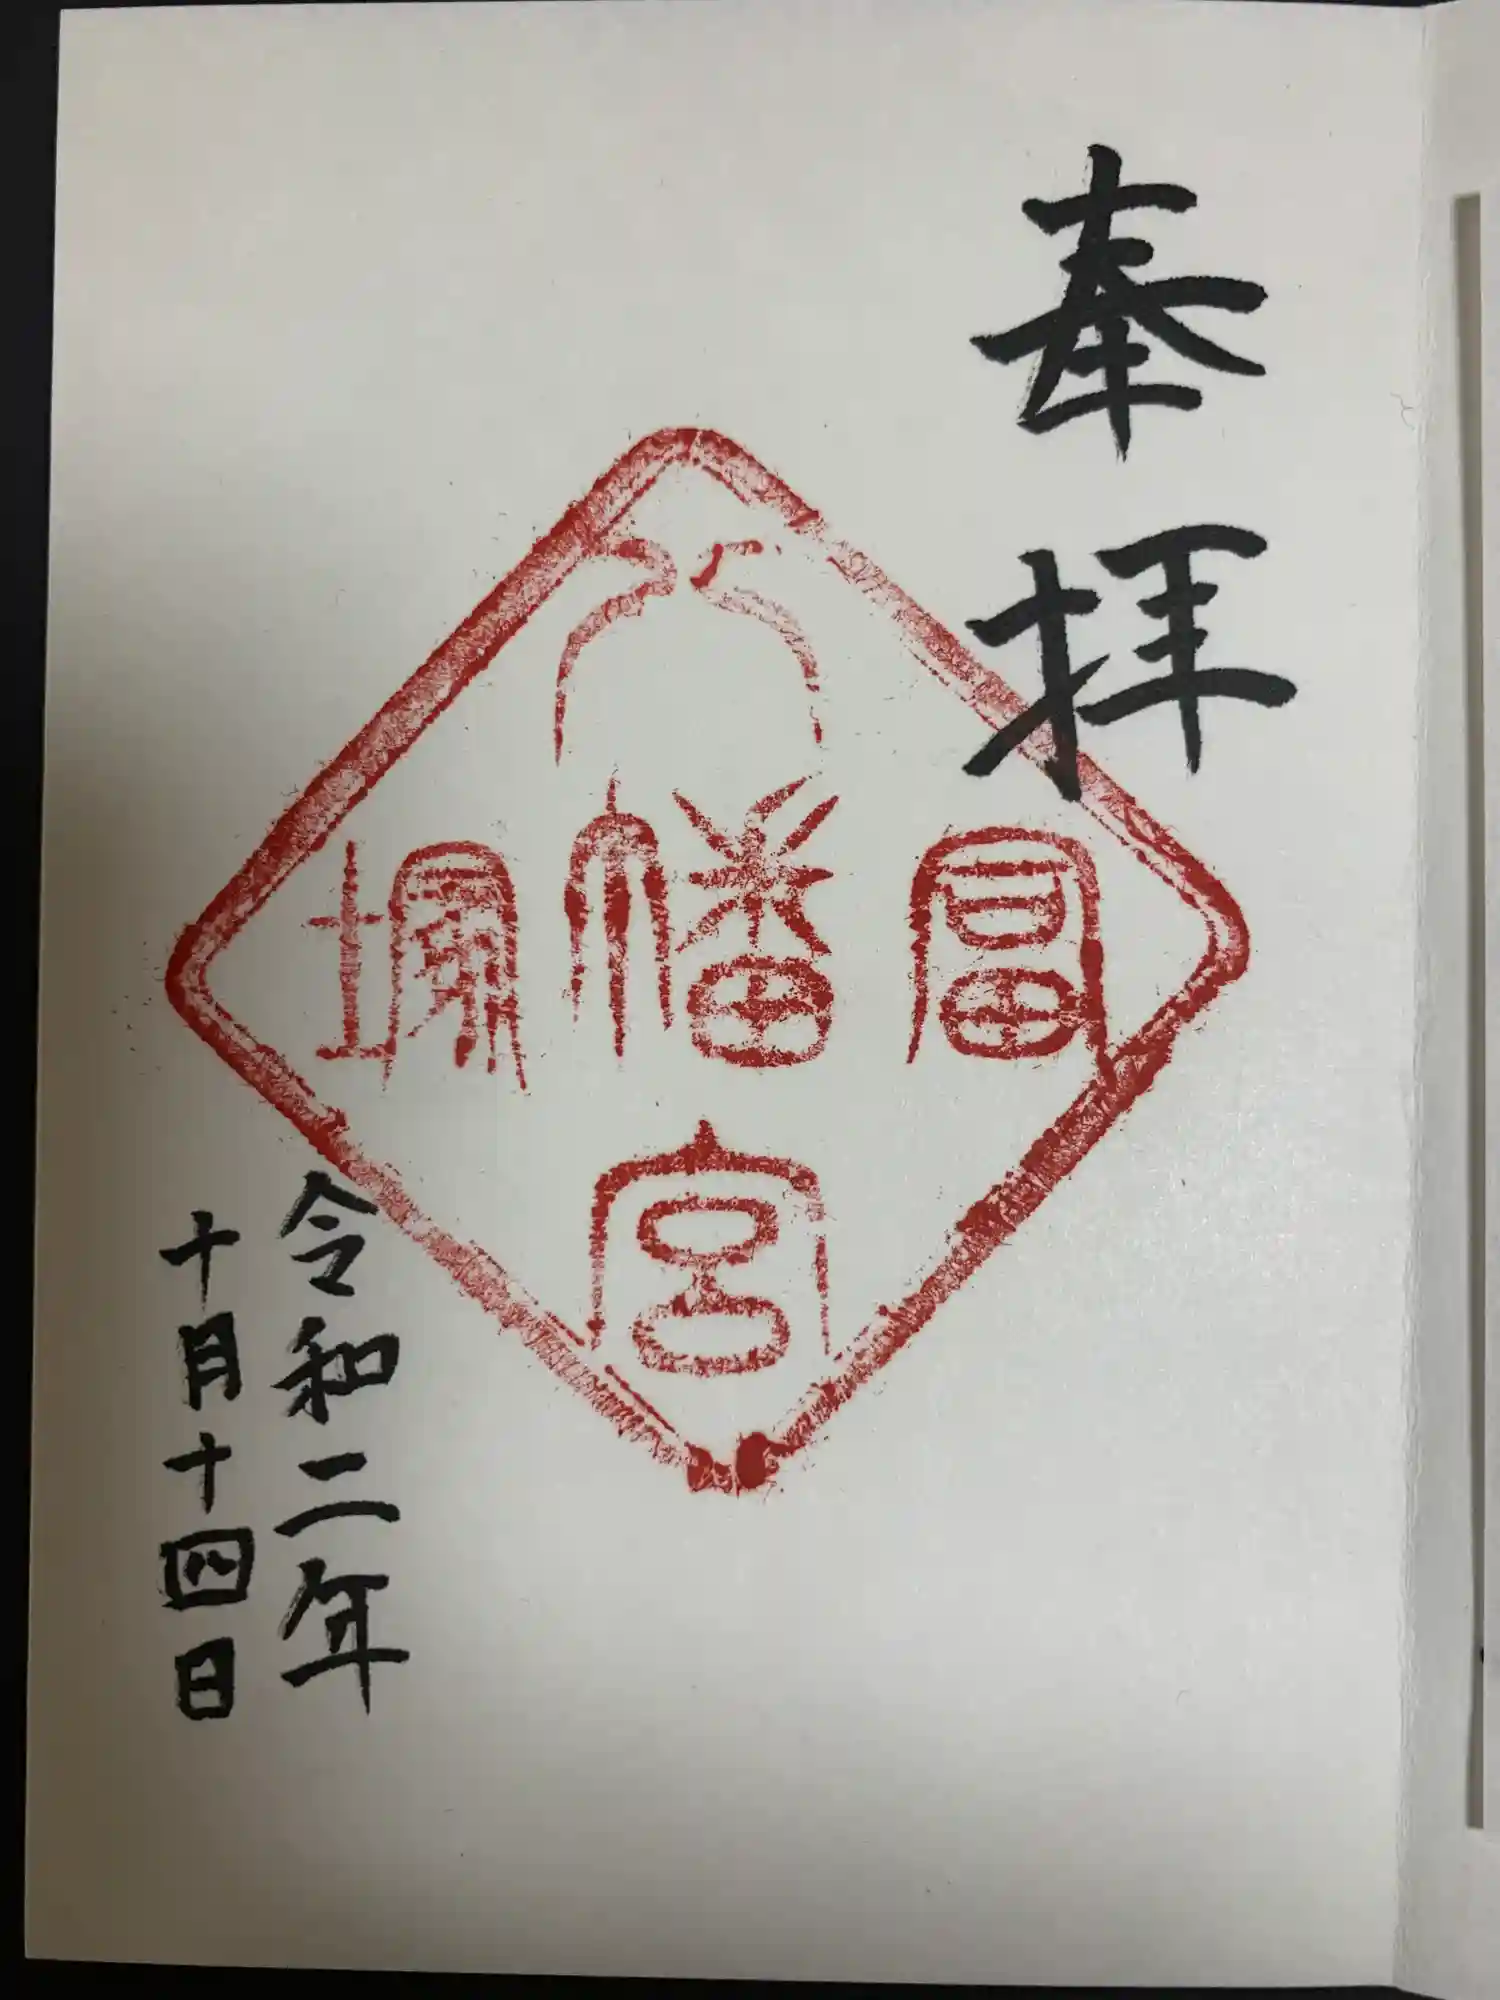 奉拝
富
八幡宮
令和二年
十月十四日